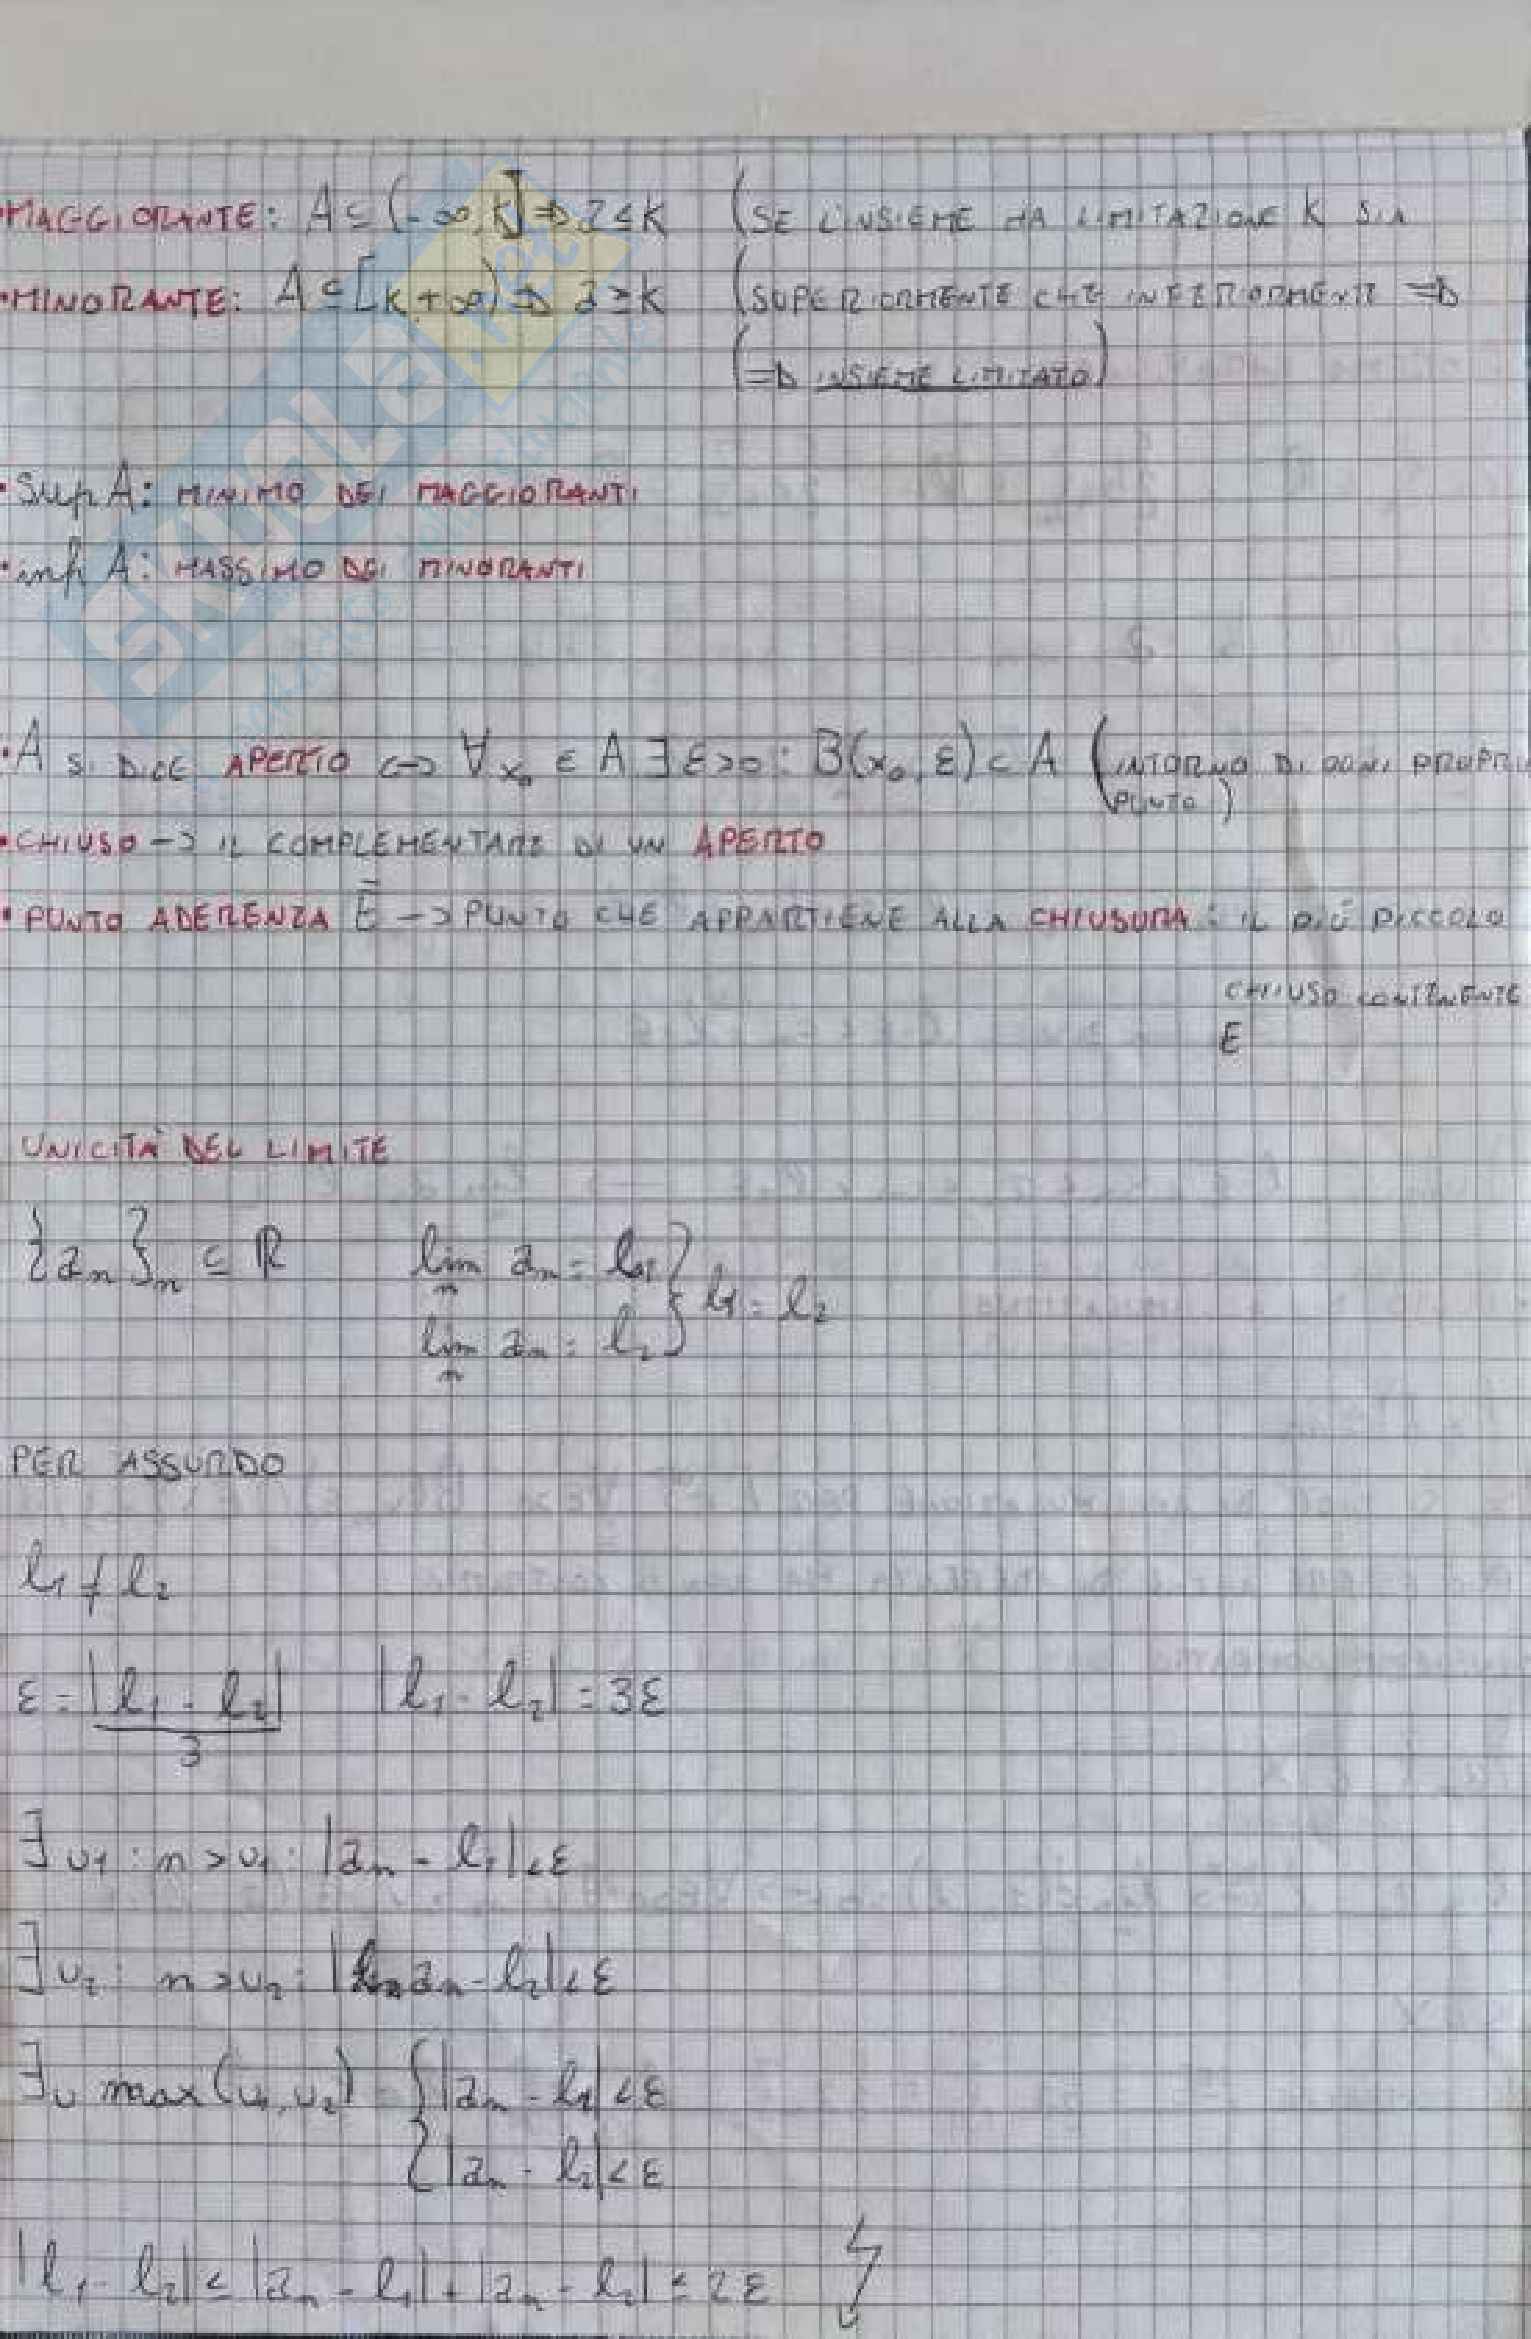 •MAGGIORANTE: A ⊆ (-∞, K] => a ≤ K (SE L'INSIEME HA LIMITAZIONE K SIA
•MINORANTE: A ⊆ [K +∞) => a ≥ K (SUPERIORMENTE CHE INFERIORMENTE =>
(=> INSIEME LIMITATO)
•Sup A: MINIMO DEI MAGGIORANTI
•inf A: MASSIMO DEI MINORANTI
•A SI DICE APERTO <-> ∀x₀ ∈ A ∃ ε>0 : B(x₀, ε) ⊂ A (INTORNO DI OGNI PROPRI
PUNTO)
•CHIUSO -> IL COMPLEMENTARE DI UN APERTO
•PUNTO ADERENZA Ē -> PUNTO CHE APPARTIENE ALLA CHIUSURA : IL PIÙ PICCOLO
CHIUSO CONTENENTE
E
UNICITÀ DEL LIMITE
{aₙ}ₙ ⊆ ℝ lim aₙ = l₁ } l₁ = l₂
n
lim aₙ = l₂
n
PER ASSURDO
l₁ ≠ l₂
ε = |l₁ - l₂| |l₁ - l₂| = 3ε
3
∃ υ₁ : n > υ₁ : |aₙ - l₁| < ε
∃ υ₂ : n > υ₂ : |aₙ - l₂| < ε
∃υ max(υ₁, υ₂) { |aₙ - l₁| < ε
{ |aₙ - l₂| < ε
|l₁ - l₂| ≤ |aₙ - l₁| + |aₙ - l₂| ≤ 2ε
SKUOLA.net